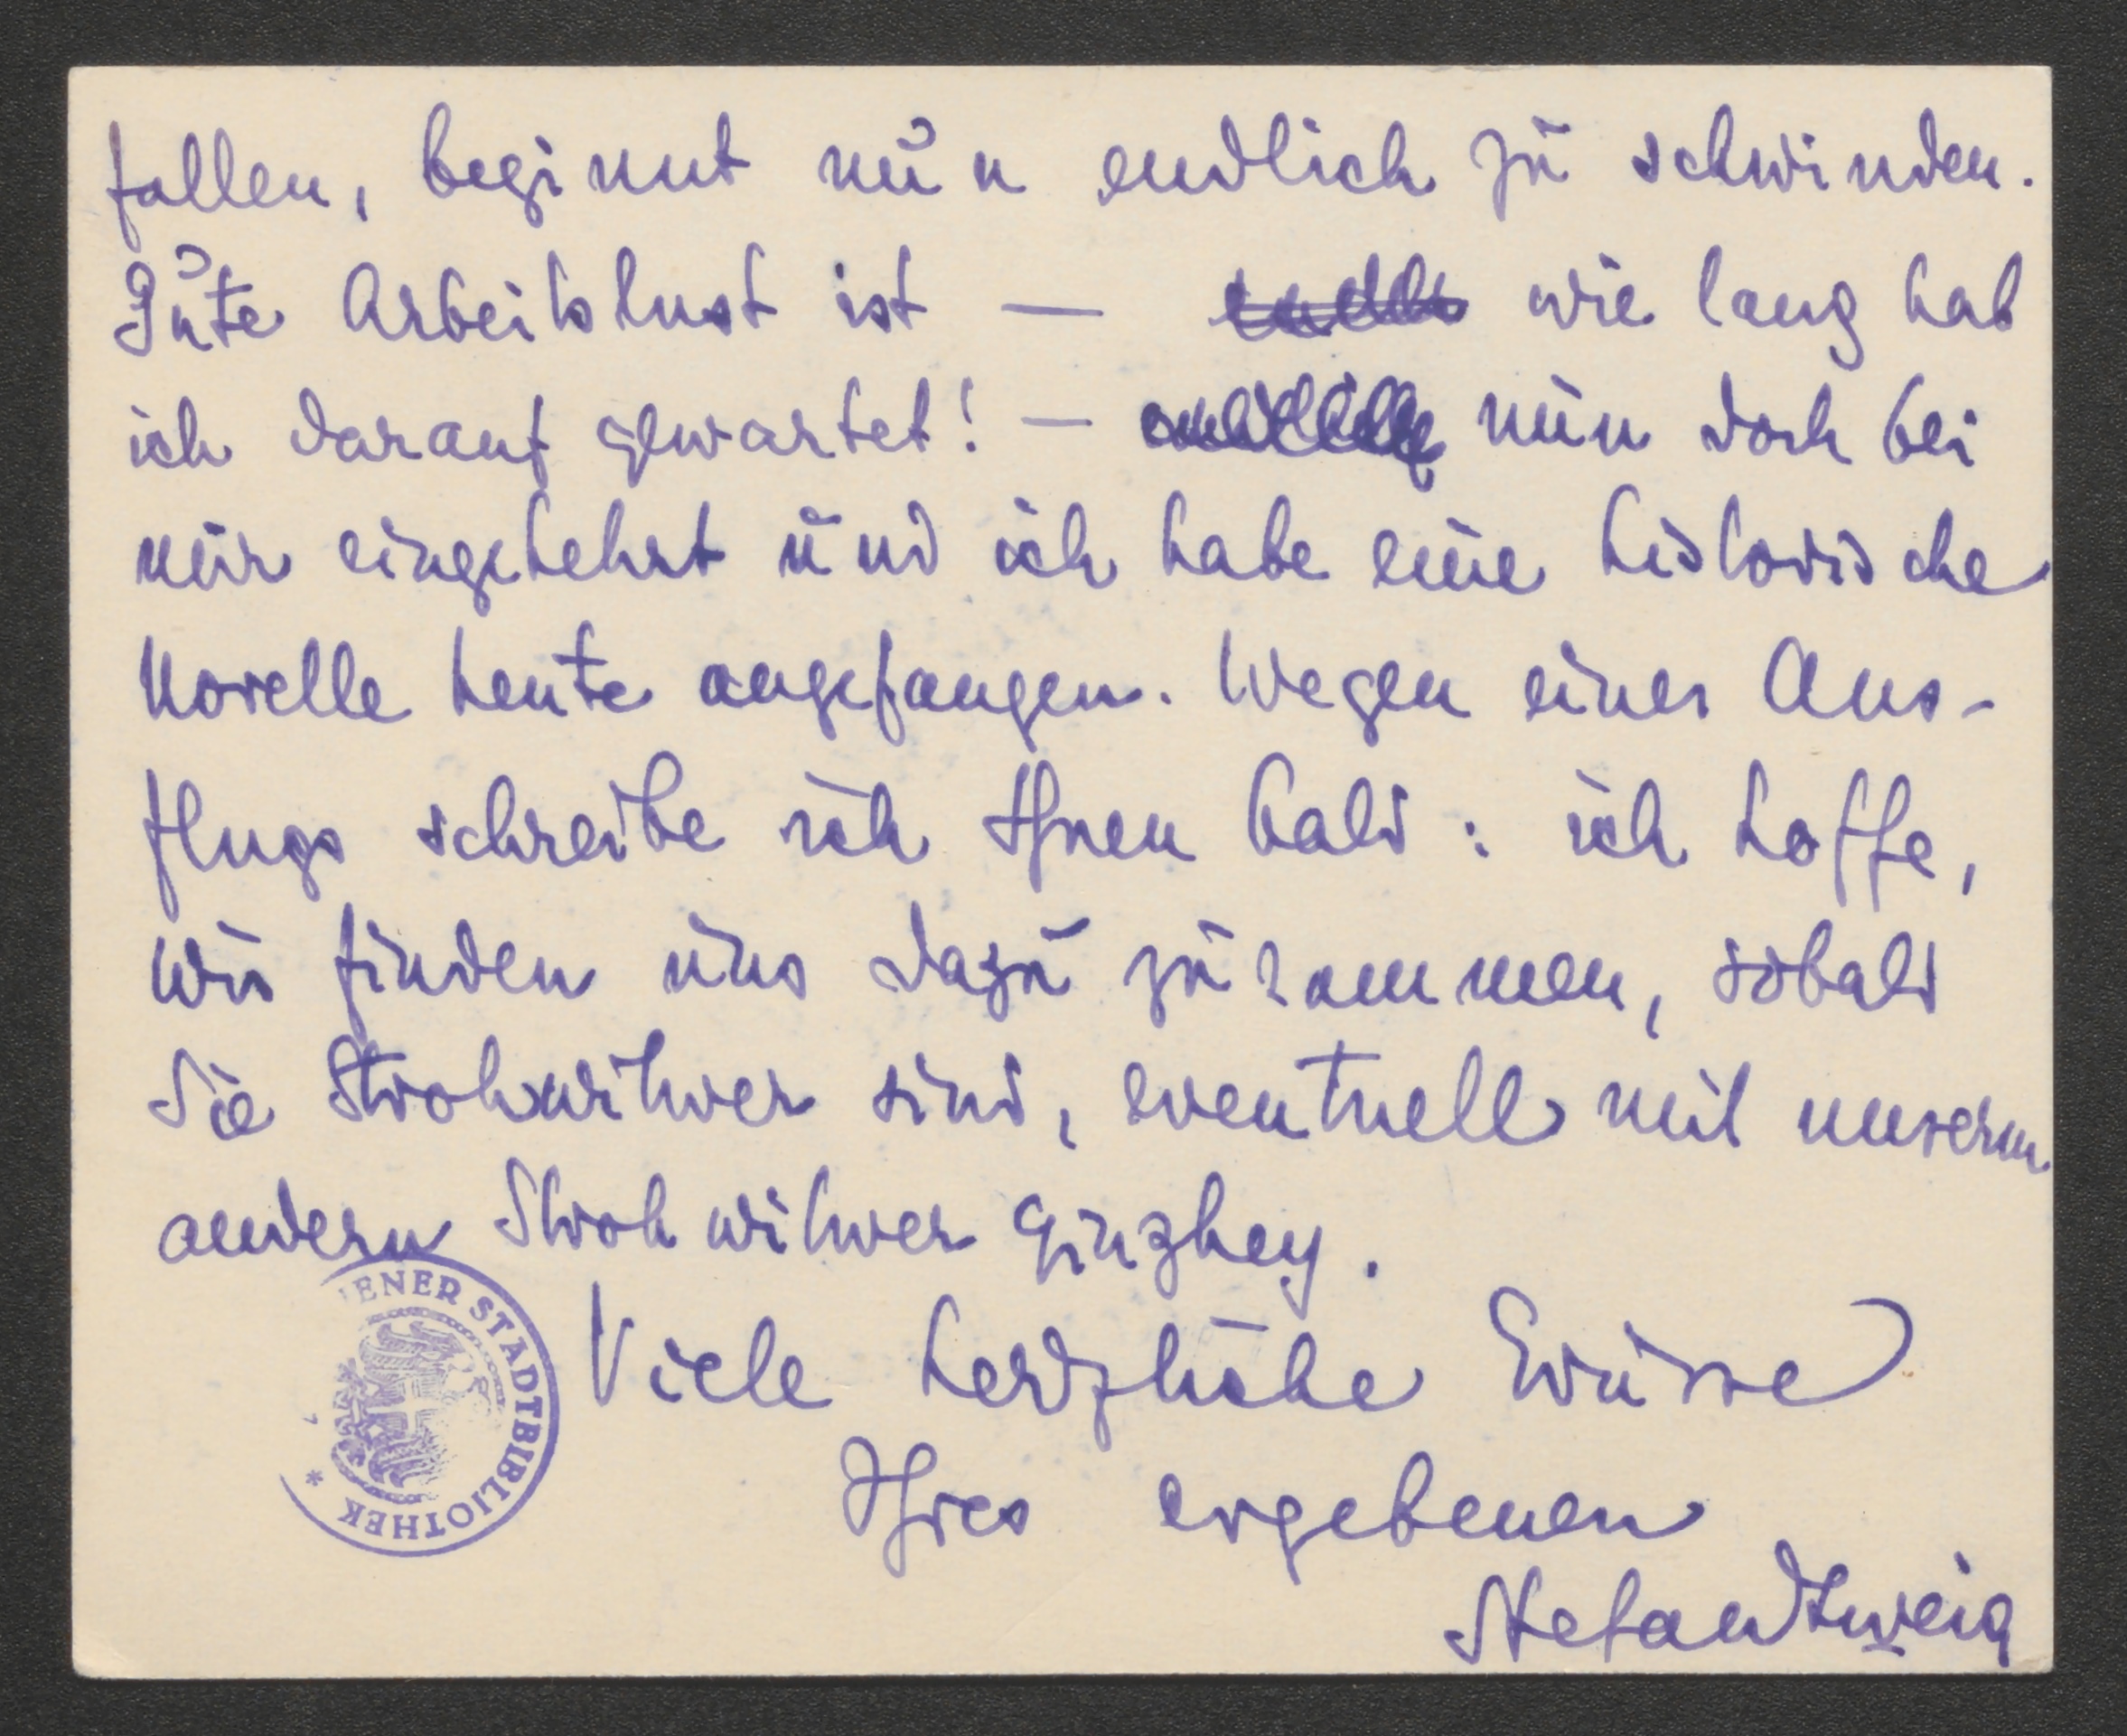 fallen, beginnt nun endlich zu schwinden.
Gute Arbeitslust ist — wie lang hab
ich darauf gewartet! — nun doch bei
mir eingekehrt und ich habe eine historische
Novelle heute angefangen. Wegen eines Aus-
flugs schreibe ich Ihnen bald: ich hoffe,
wir finden uns dazu zusammen, sobald
Sie Strohwitwer sind, eventuell mit unserm
andern Strohwitwer Ginzkey.
Viele herzliche Grüsse
Ihres ergebenen
Stefan Zweig
IENER STADTBIBLIOTHEK *